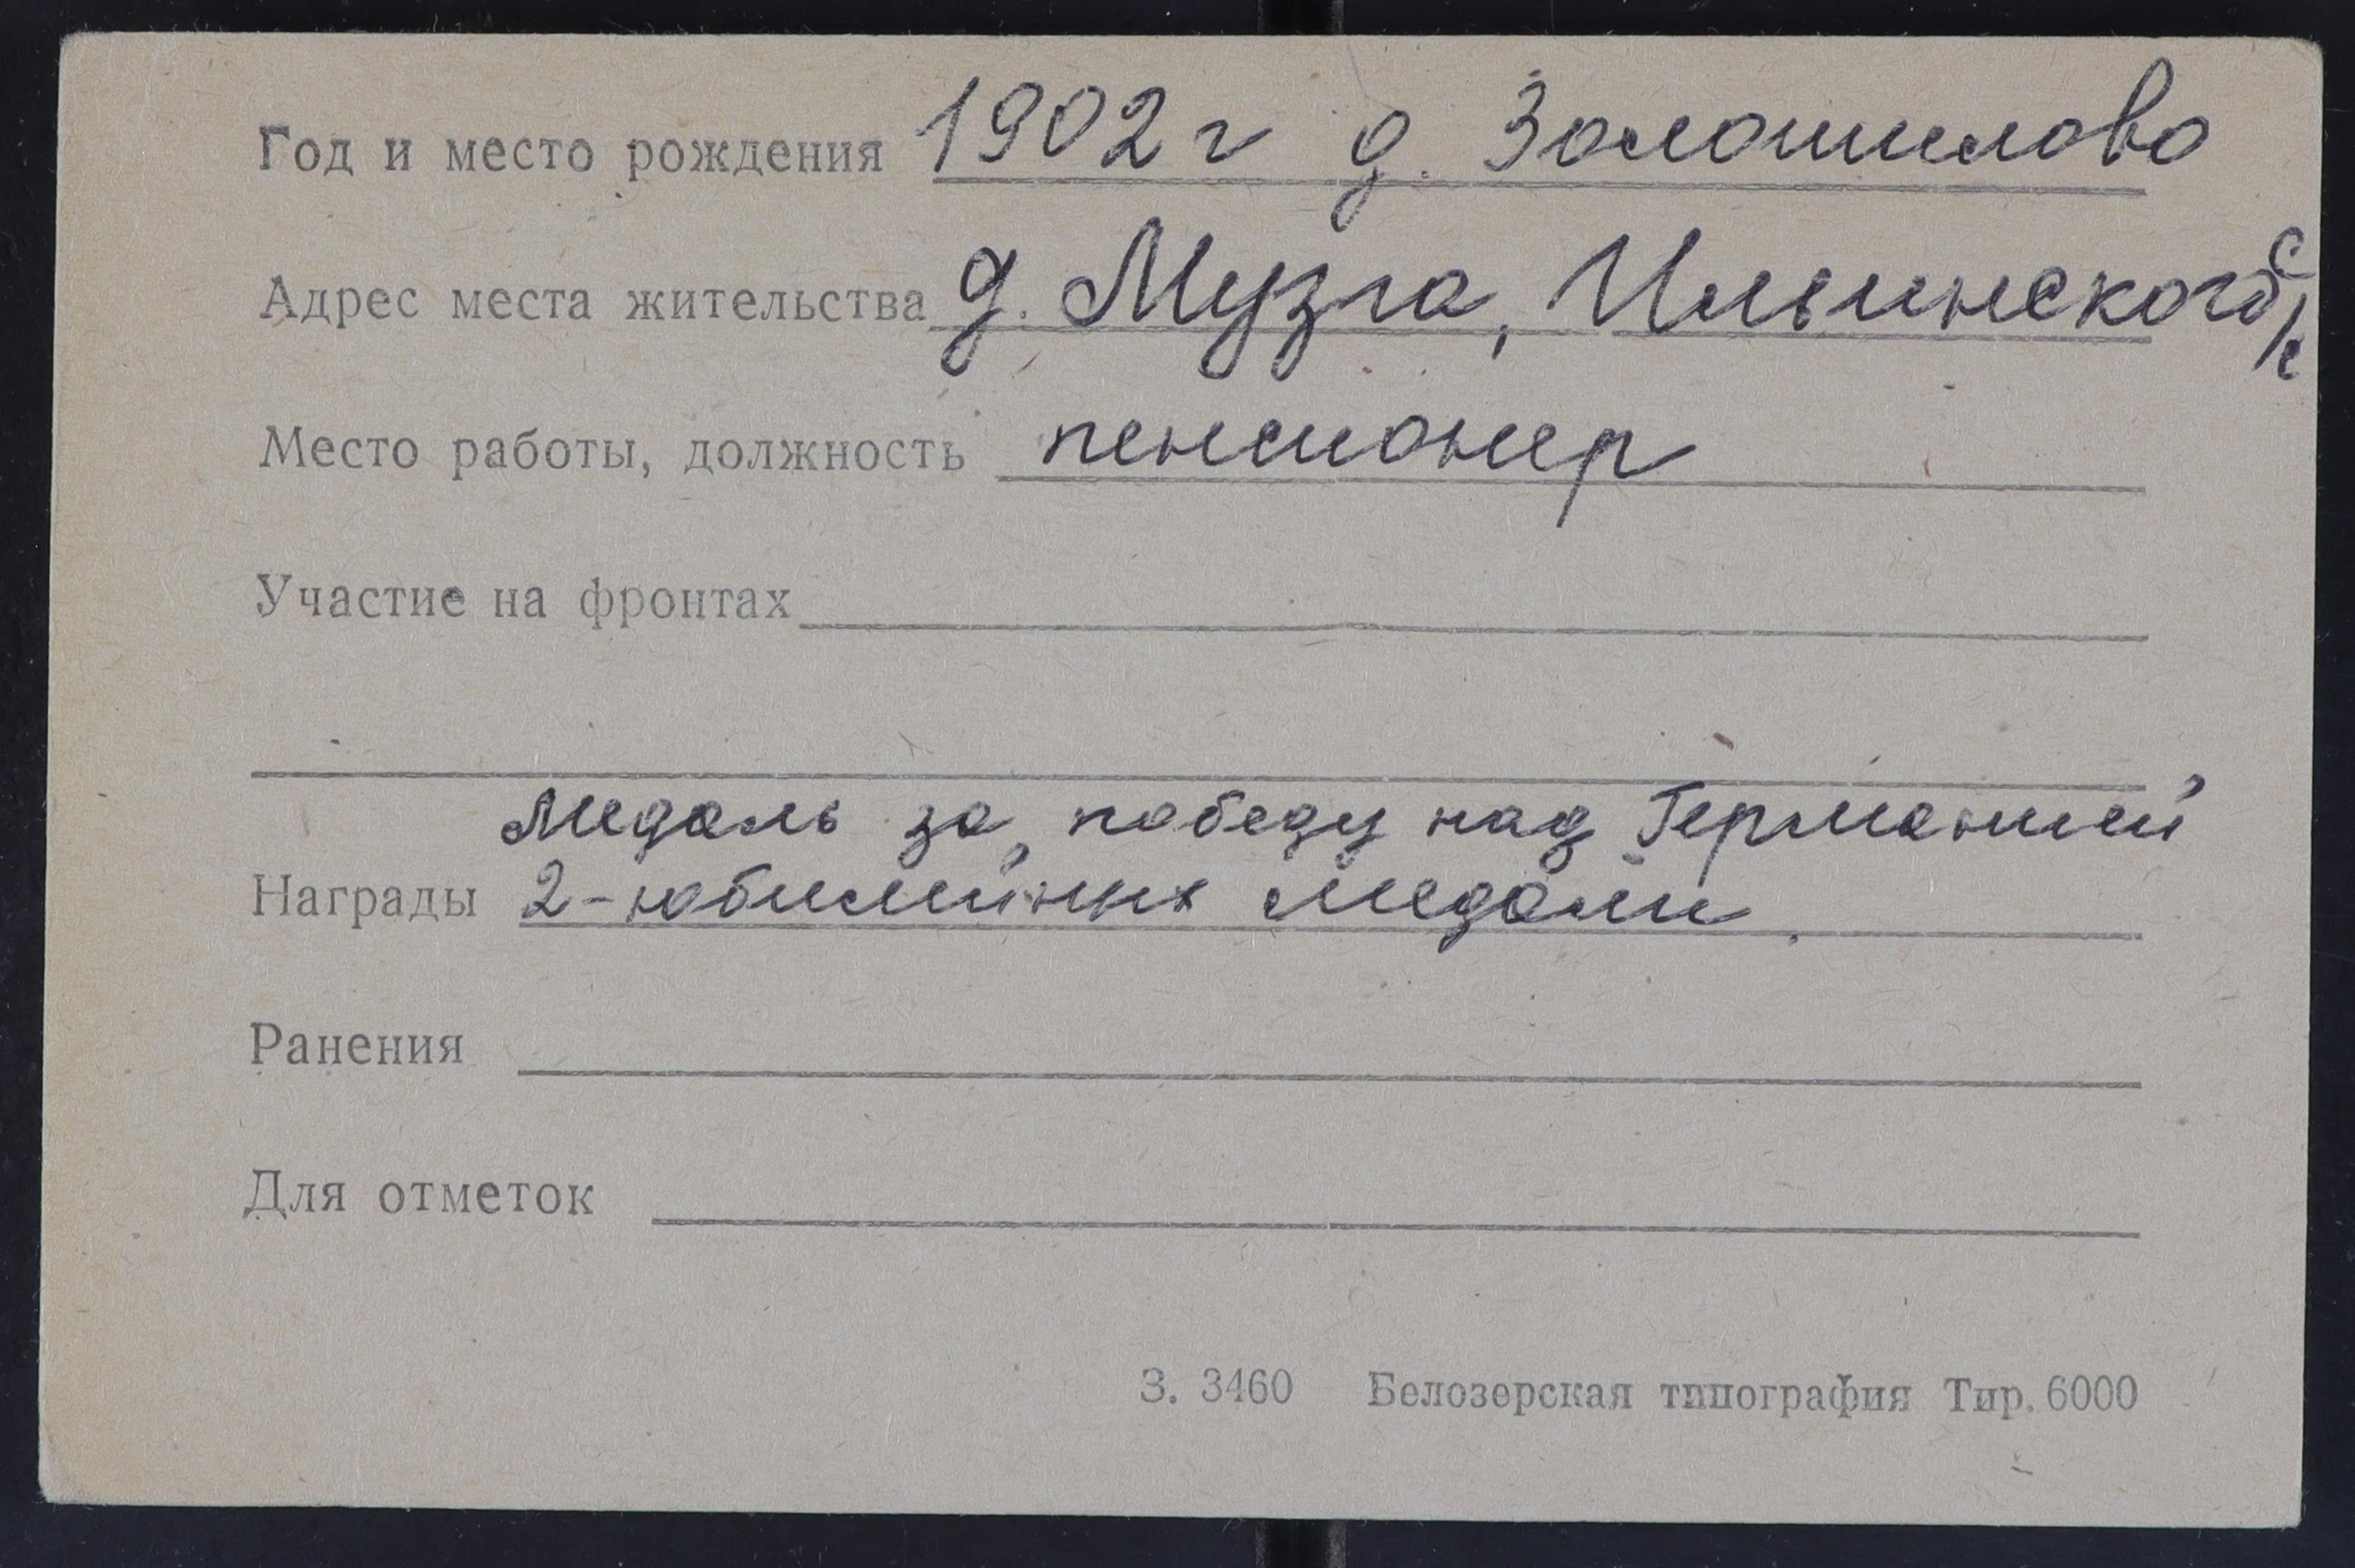 Год и место рождения 1902 г д. Золотилово
Адрес места жительства д. Музга, Ильинского с/с
Место работы, должность пенсионер
Участие на фронтах
Медаль за победу над Германией
Награды 2-юбилейных медали.
Ранения
Для отметок
З. 3460 Белозерская типография Тир. 6000